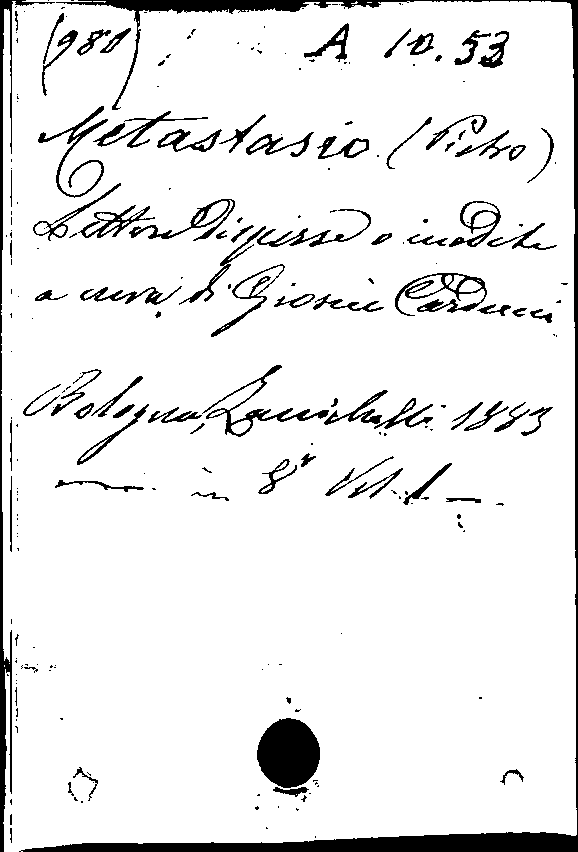 (980) A 10.53
Metastasio (Pietro)
Lettere disperse e inedite
a cura di Giosuè Carducci
Bologna, Zanichelli 1883
— in 8° Vol. 1 —